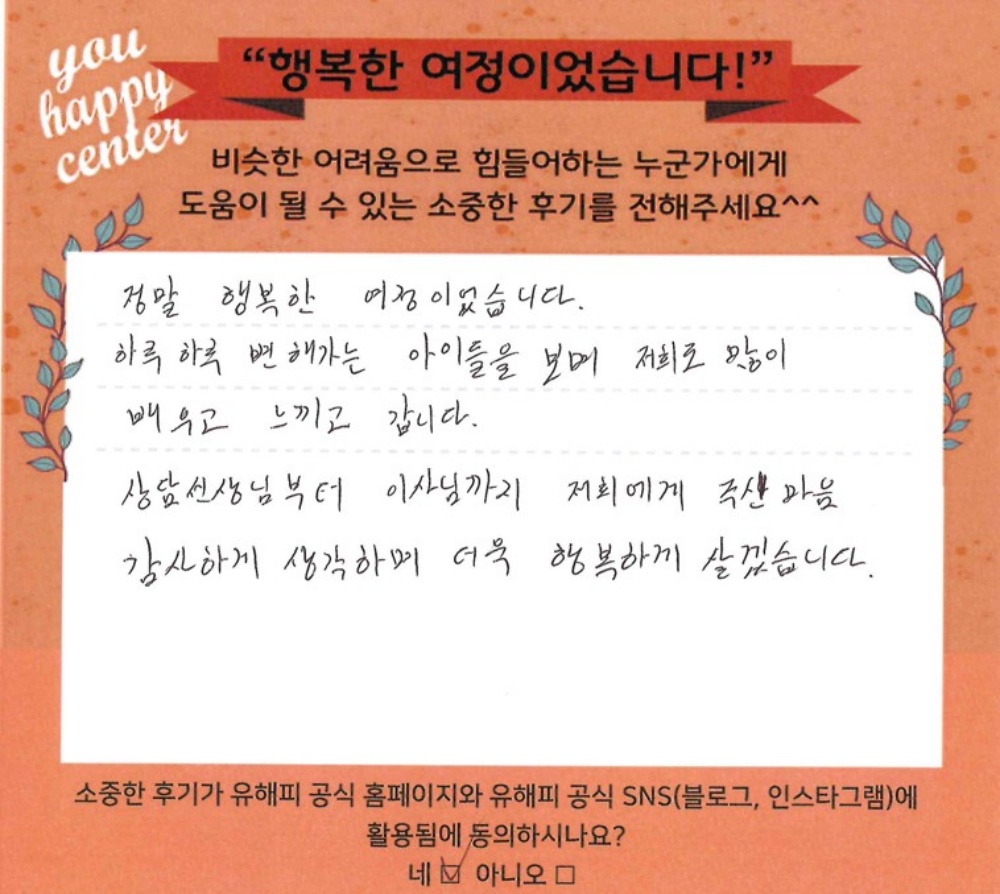 you
happy
center
“행복한 여정이었습니다!”
비슷한 어려움으로 힘들어하는 누군가에게
도움이 될 수 있는 소중한 후기를 전해주세요^^
정말 행복한 여정이었습니다.
하루 하루 변해가는 아이들을 보며 저희도 많이
배우고 느끼고 갑니다.
상담선생님부터 이사님까지 저희에게 주신 마음
감사하게 생각하며 더욱 행복하게 살겠습니다.
소중한 후기가 유해피 공식 홈페이지와 유해피 공식 SNS(블로그, 인스타그램)에
활용됨에 동의하시나요?
네 ☑ 아니오 ☐